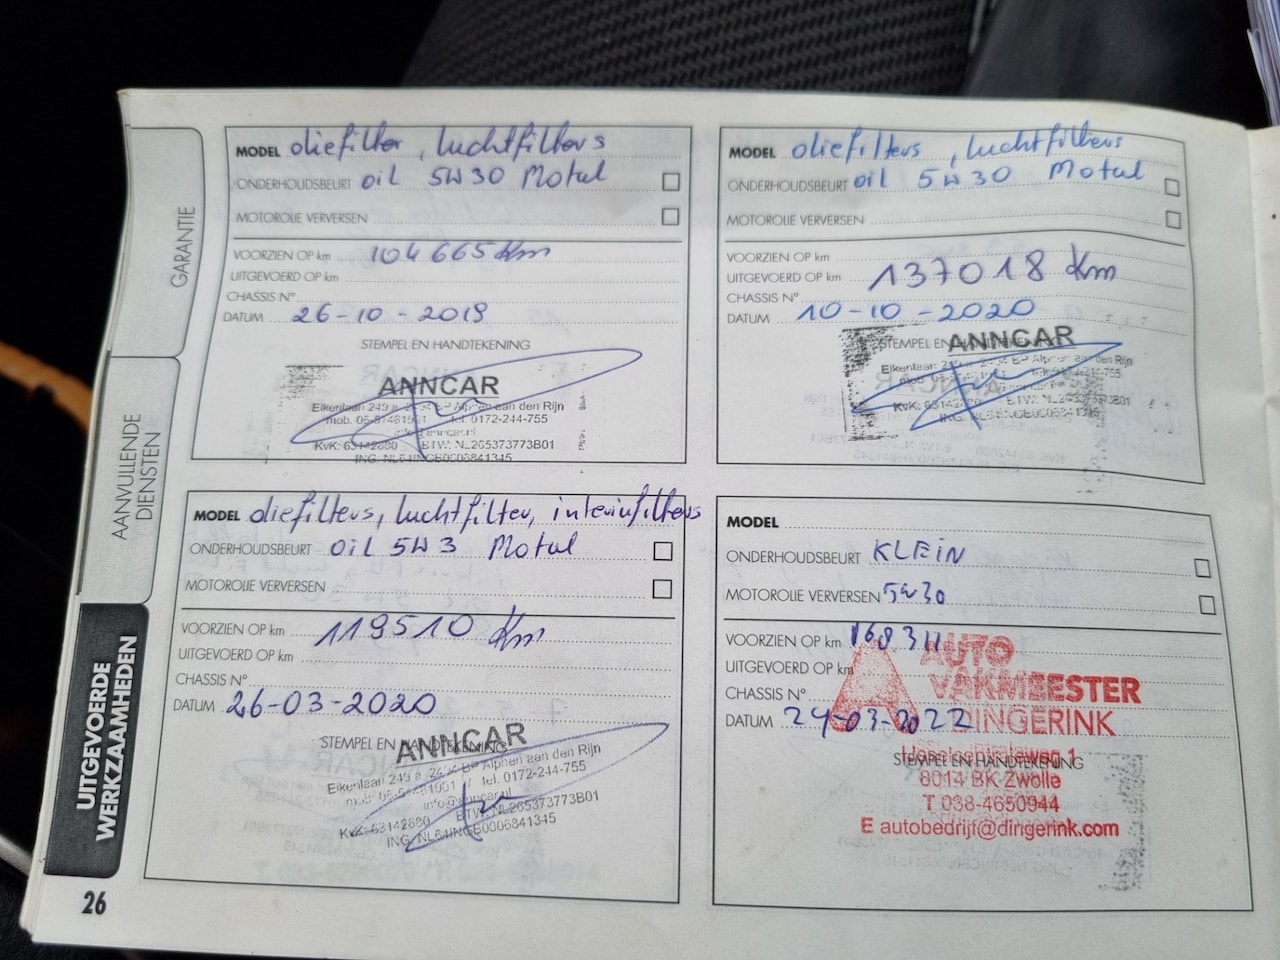 GARANTIE
AANVULLENDE
DIENSTEN
UITGEVOERDE
WERKZAAMHEDEN
26
MODEL oliefilter, luchtfilters
ONDERHOUDSBEURT oil 5W30 Motul
MOTOROLIE VERVERSEN
VOORZIEN OP km 104665 Km
UITGEVOERD OP km
CHASSIS N°
DATUM 26-10-2019
STEMPEL EN HANDTEKENING
ANNCAR
Eikenlaan 249 a 2404 BP Alphen aan den Rijn
mob. 06-81481901 tel. 0172-244-755
info@anncar.nl
KvK: 63142880 BTW: NL265373773B01
ING: NL61INGB0006841345
MODEL oliefilters, luchtfilters
ONDERHOUDSBEURT oil 5W30 Motul
MOTOROLIE VERVERSEN
VOORZIEN OP km
UITGEVOERD OP km 137018 Km
CHASSIS N°
DATUM 10-10-2020
STEMPEL EN HANDTEKENING
ANNCAR
Eikenlaan 249 BP Alphen aan den Rijn
MODEL oliefilters, luchtfilter, interiufilters
ONDERHOUDSBEURT oil 5W3 Motul
MOTOROLIE VERVERSEN
VOORZIEN OP km 119510 Km
UITGEVOERD OP km
CHASSIS N°
DATUM 26-03-2020
STEMPEL EN HANDTEKENING
ANNCAR
Eikenlaan 249 a 2404 BP Alphen aan den Rijn
tel. 0172-244-755
info@anncar.nl
KvK: 63142880 BTW: NL265373773B01
ING: NL61INGB0006841345
MODEL
ONDERHOUDSBEURT KLEIN
MOTOROLIE VERVERSEN 5W30
VOORZIEN OP km 168311
UITGEVOERD OP km
CHASSIS N°
DATUM 24-03-2022
AUTO
VAKMEESTER
DINGERINK
STEMPEL EN HANDTEKENING
8014 BK Zwolle
T 038-4650944
E autobedrijf@dingerink.com